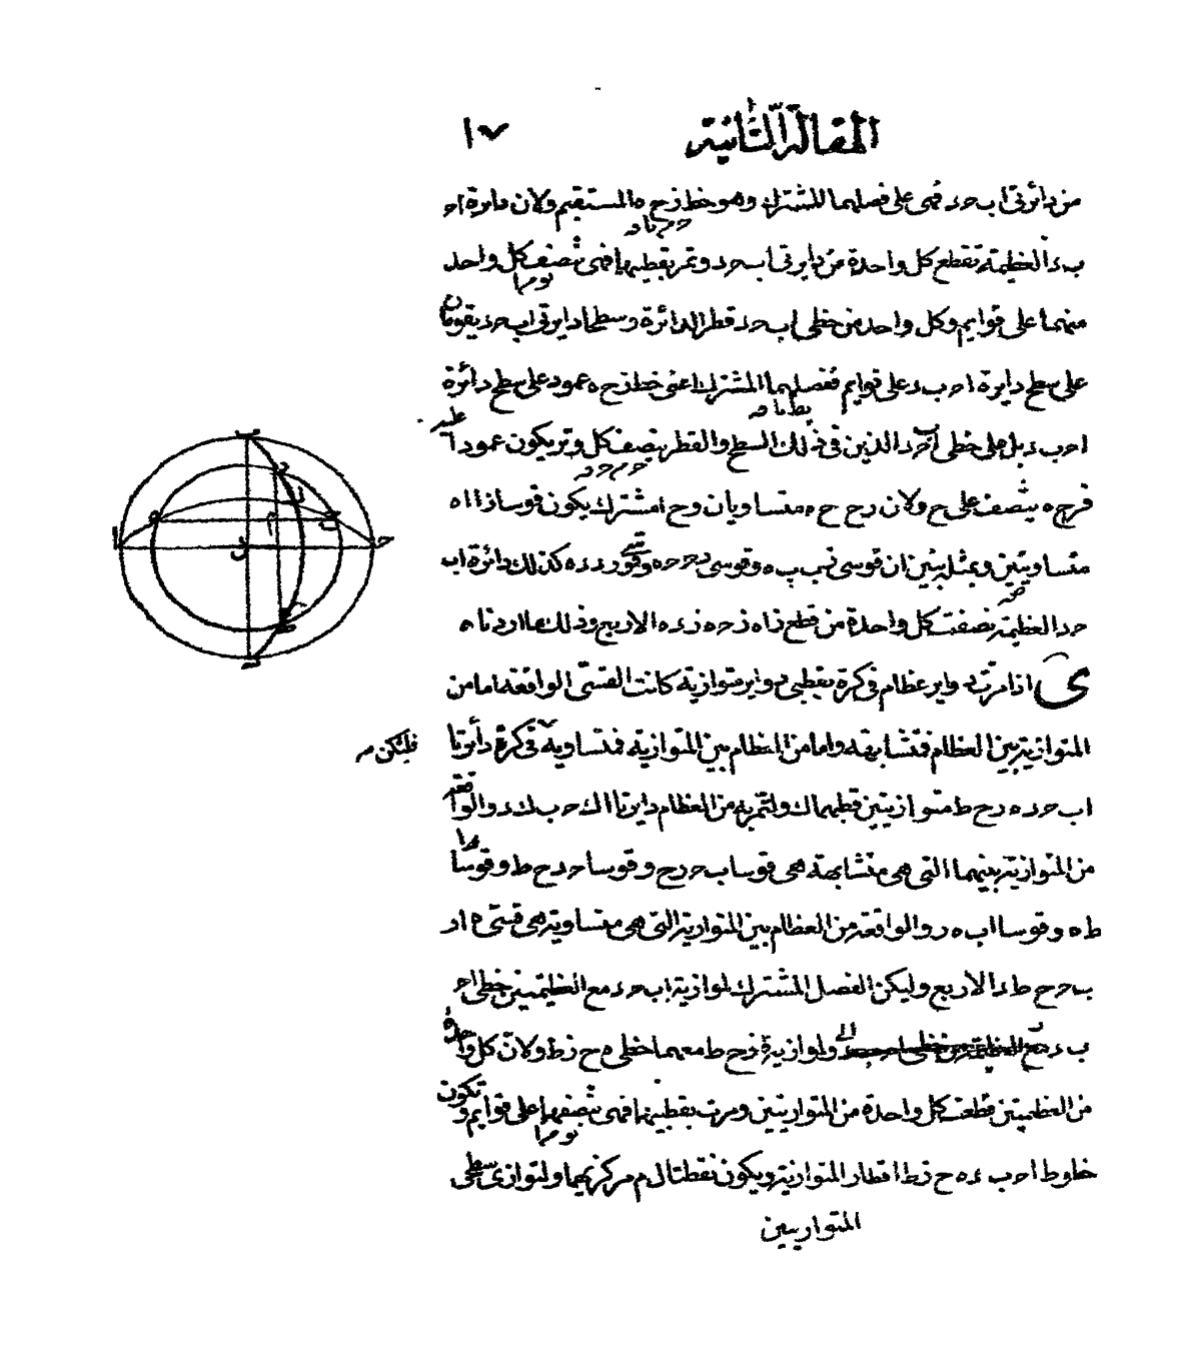 المقالة الثانية ١٧
من دائرتي اب حد فهي على فصلهما المشترك وهو خط زح ه المستقيم ولان دايرة اح
ب د العظيمة تقطع كل واحدة من دايرتي اب حد وتمر بقطبيها فهي تنصف كل واحد
منهما على قوايم وكل واحد من خطي اب حد قطر الدائرة وسطحا دايرتي اب حد يقومان
على سطح دايرة اح ب د على قوايم ففصلهما المشترك اعني خط زح ه عمود على سطح دائرة
اح ب د بل على خطي اللذين في ذلك السطح والقطر ينصف كل وتر يكون عمودا عليه
ه ينصف على ح ولان زح ح ه متساويان وح ا مشترك يكون قوسا زا ا ه
متساويتين وبمثله نبين ان قوسي زب ب ه وقوسي كذلك دائرة اب
حد العظيمة نصفت كل واحدة من قطع زاه زحه زده الاربع وذلك ما اردناه
ى اذا مرت دواير عظام في كرة بقطبي دواير متوازية كانت القسي الواقعة اما من
المتوازية بين العظام فمتشابهة واما من العظام بين المتوازية فمتساوية في كرة دائرتا
فليكن
اب حد ه زح ط متوازيتين قطبهما ك ولتمر به من العظام دايرتا ا ك ح ب ك د والواقعة
من المتوازية بينهما التي هي متشابهة هي قوسا ب ح زح وقوسا حد ح ط وقوسا
ط ه وقوسا اب ه ز والواقعة من العظام بين المتوازية التي هي متساوية هي قسي ه ا ز
ب ح ح ط د الاربع وليكن الفصل المشترك لموازية اب حد مع العظيمتين خطي اح
ب د ولموازية ه زح ط معهما خطي ه ح زط ولان كل واحدة
من العظيمتين قطعت كل واحدة من المتوازيتين ومرت بقطبيهما فهي تنصفهما على قوايم وتكون
خطوط اح ب د ه ح زط اقطار المتوازية ويكون نقطتا ل م مركزيهما ولتوازي سطحي
المتوازيتين